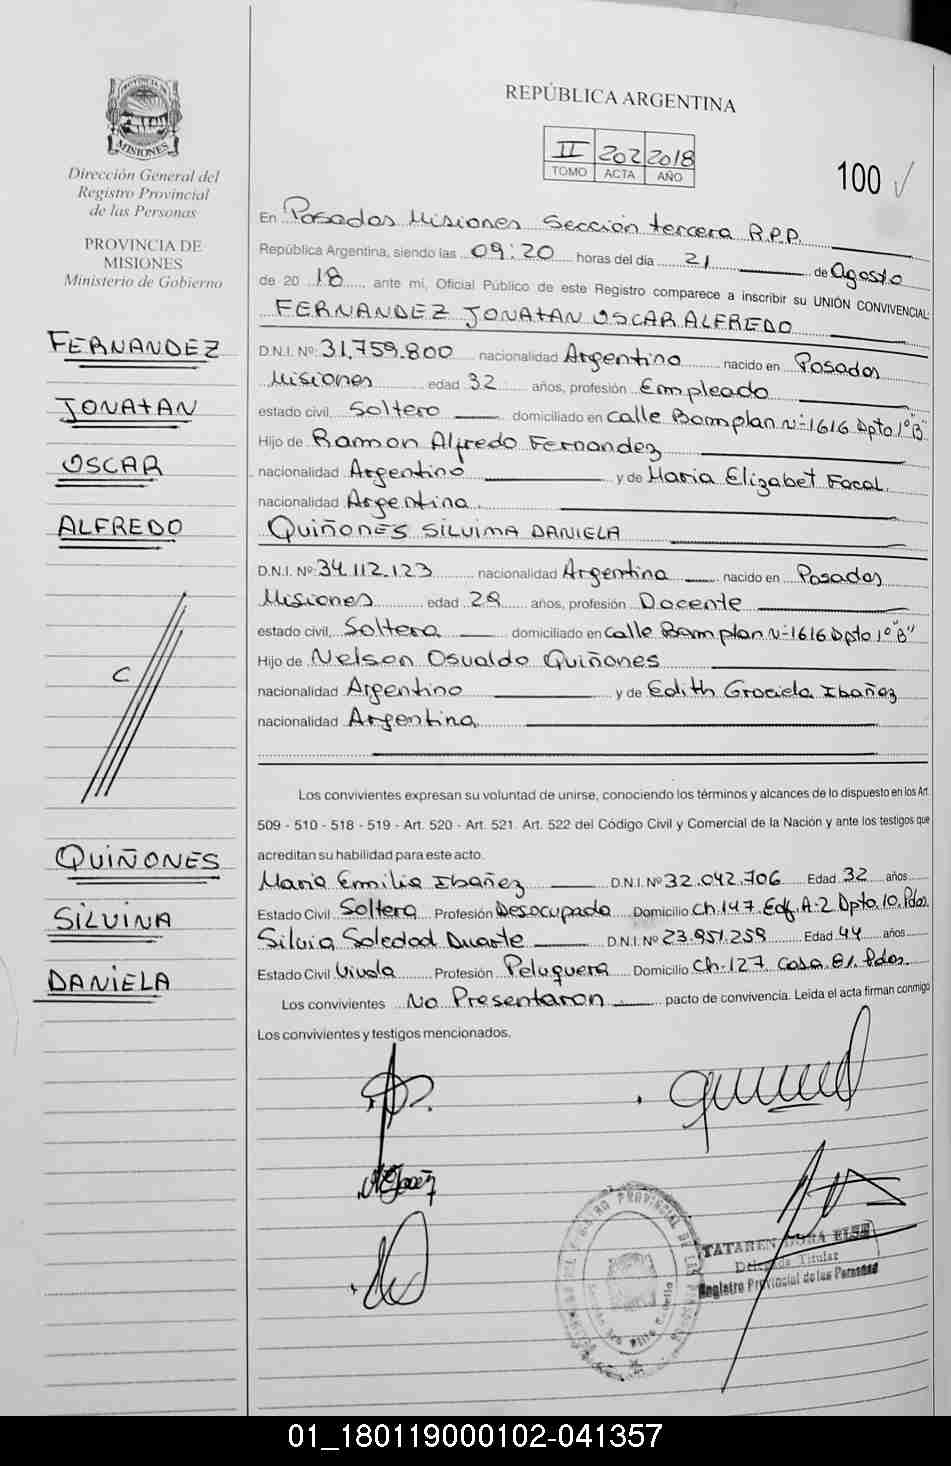 PROVINCIA DE
MISIONES
Dirección General del
Registro Provincial
de las Personas
PROVINCIA DE
MISIONES
Ministerio de Gobierno
FERNANDEZ
JONATAN
OSCAR
ALFREDO
C
QUIÑONES
SILVINA
DANIELA
REPÚBLICA ARGENTINA
II 202 2018
TOMO ACTA AÑO
100
En Posadas Misiones Sección tercera R.P.P.
República Argentina, siendo las 09:20 horas del día 21 de Agosto
de 20 18 ante mí, Oficial Público de este Registro comparece a inscribir su UNIÓN CONVIVENCIAL:
FERNANDEZ JONATAN OSCAR ALFREDO
D.N.I. Nº: 31.759.800 nacionalidad Argentino nacido en Posadas
Misiones edad 32 años, profesión Empleado
estado civil, Soltero domiciliado en Calle Bomplan N-1616 Dpto 1º "B"
Hijo de Ramon Alfredo Fernandez
nacionalidad Argentino y de Maria Elizabet Facal
nacionalidad Argentina.
QUIÑONES SILVINA DANIELA
D.N.I. Nº 34.112.123 nacionalidad Argentina nacido en Posadas
Misiones edad 29 años, profesión Docente
estado civil, Soltera domiciliado en Calle Bomplan N-1616 Dpto 1º "B"
Hijo de Nelson Osvaldo Quiñones
nacionalidad Argentino y de Edith Graciela Ibañez
nacionalidad Argentina.
Los convivientes expresan su voluntad de unirse, conociendo los términos y alcances de lo dispuesto en los Art.
509 - 510 - 518 - 519 - Art. 520 - Art. 521. Art. 522 del Código Civil y Comercial de la Nación y ante los testigos que
acreditan su habilidad para este acto.
Maria Emilia Ibañez D.N.I. Nº 32.042.706 Edad 32 años
Estado Civil Soltera Profesión Desocupada Domicilio Ch.147. Edf. A-2 Dpto.10. Pdas.
Silvia Soledad Duarte D.N.I. Nº 23.951.259 Edad 44 años
Estado Civil Viuda Profesión Peluquera Domicilio Ch-127. Casa 81. Pdas.
Los convivientes No Presentaron pacto de convivencia. Leída el acta firman conmigo
Los convivientes y testigos mencionados.
TATAREN DORA ELSE
Delegada Titular
Registro Provincial de las Personas
01_180119000102-041357